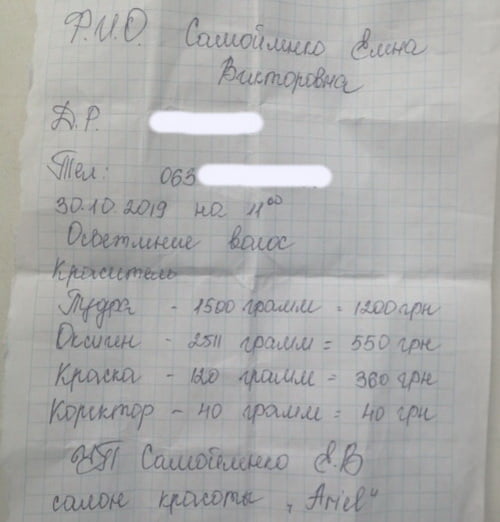 Ф.И.О. Самойленко Елена
Викторовна
Д.Р.
Тел: 063
30.10.2019 на 11⁰⁰
Осветление волос
Краситель
Пудра - 1500 грамм = 1200 грн
Оксиген - 2511 грамм = 550 грн
Краска - 120 грамм = 360 грн
Коректор - 40 грамм = 40 грн
Самойленко Е.В
салон красоты „Ariel"